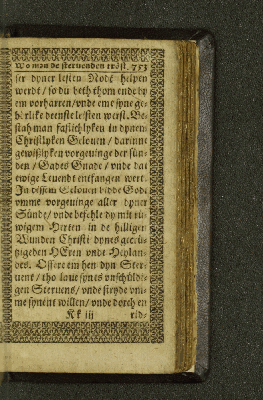 Wo man de steruenden tröst. 753
ser dyner lesten Nodt helpen
werdt / so du beth thom ende dy
em vorharren / vnde eme syne ge-
börlike deenste leisten werst. Be-
stah man fastichlyken in dynem
Christlyken Gelouen / darinne
gewißlyken vorgeuinge der sün-
den / Gades Gnade / vnde dat
ewige Leuendt entfangen wert.
In dessem Gelouen bidde Godt
vmme vorgeuinge aller dyner
Sünde / vnde befehle dy mit rü-
wigem Herten in de hilligen
Wunden Christi dynes gecrü-
tzigeden HEren vnde Heylan-
des. Offere em hen dyn Ster-
uent / tho laue synes vnschüldi-
gen Steruens / vnde stryde vm-
me synent willen / vnde dorch en
Kk iij rid-